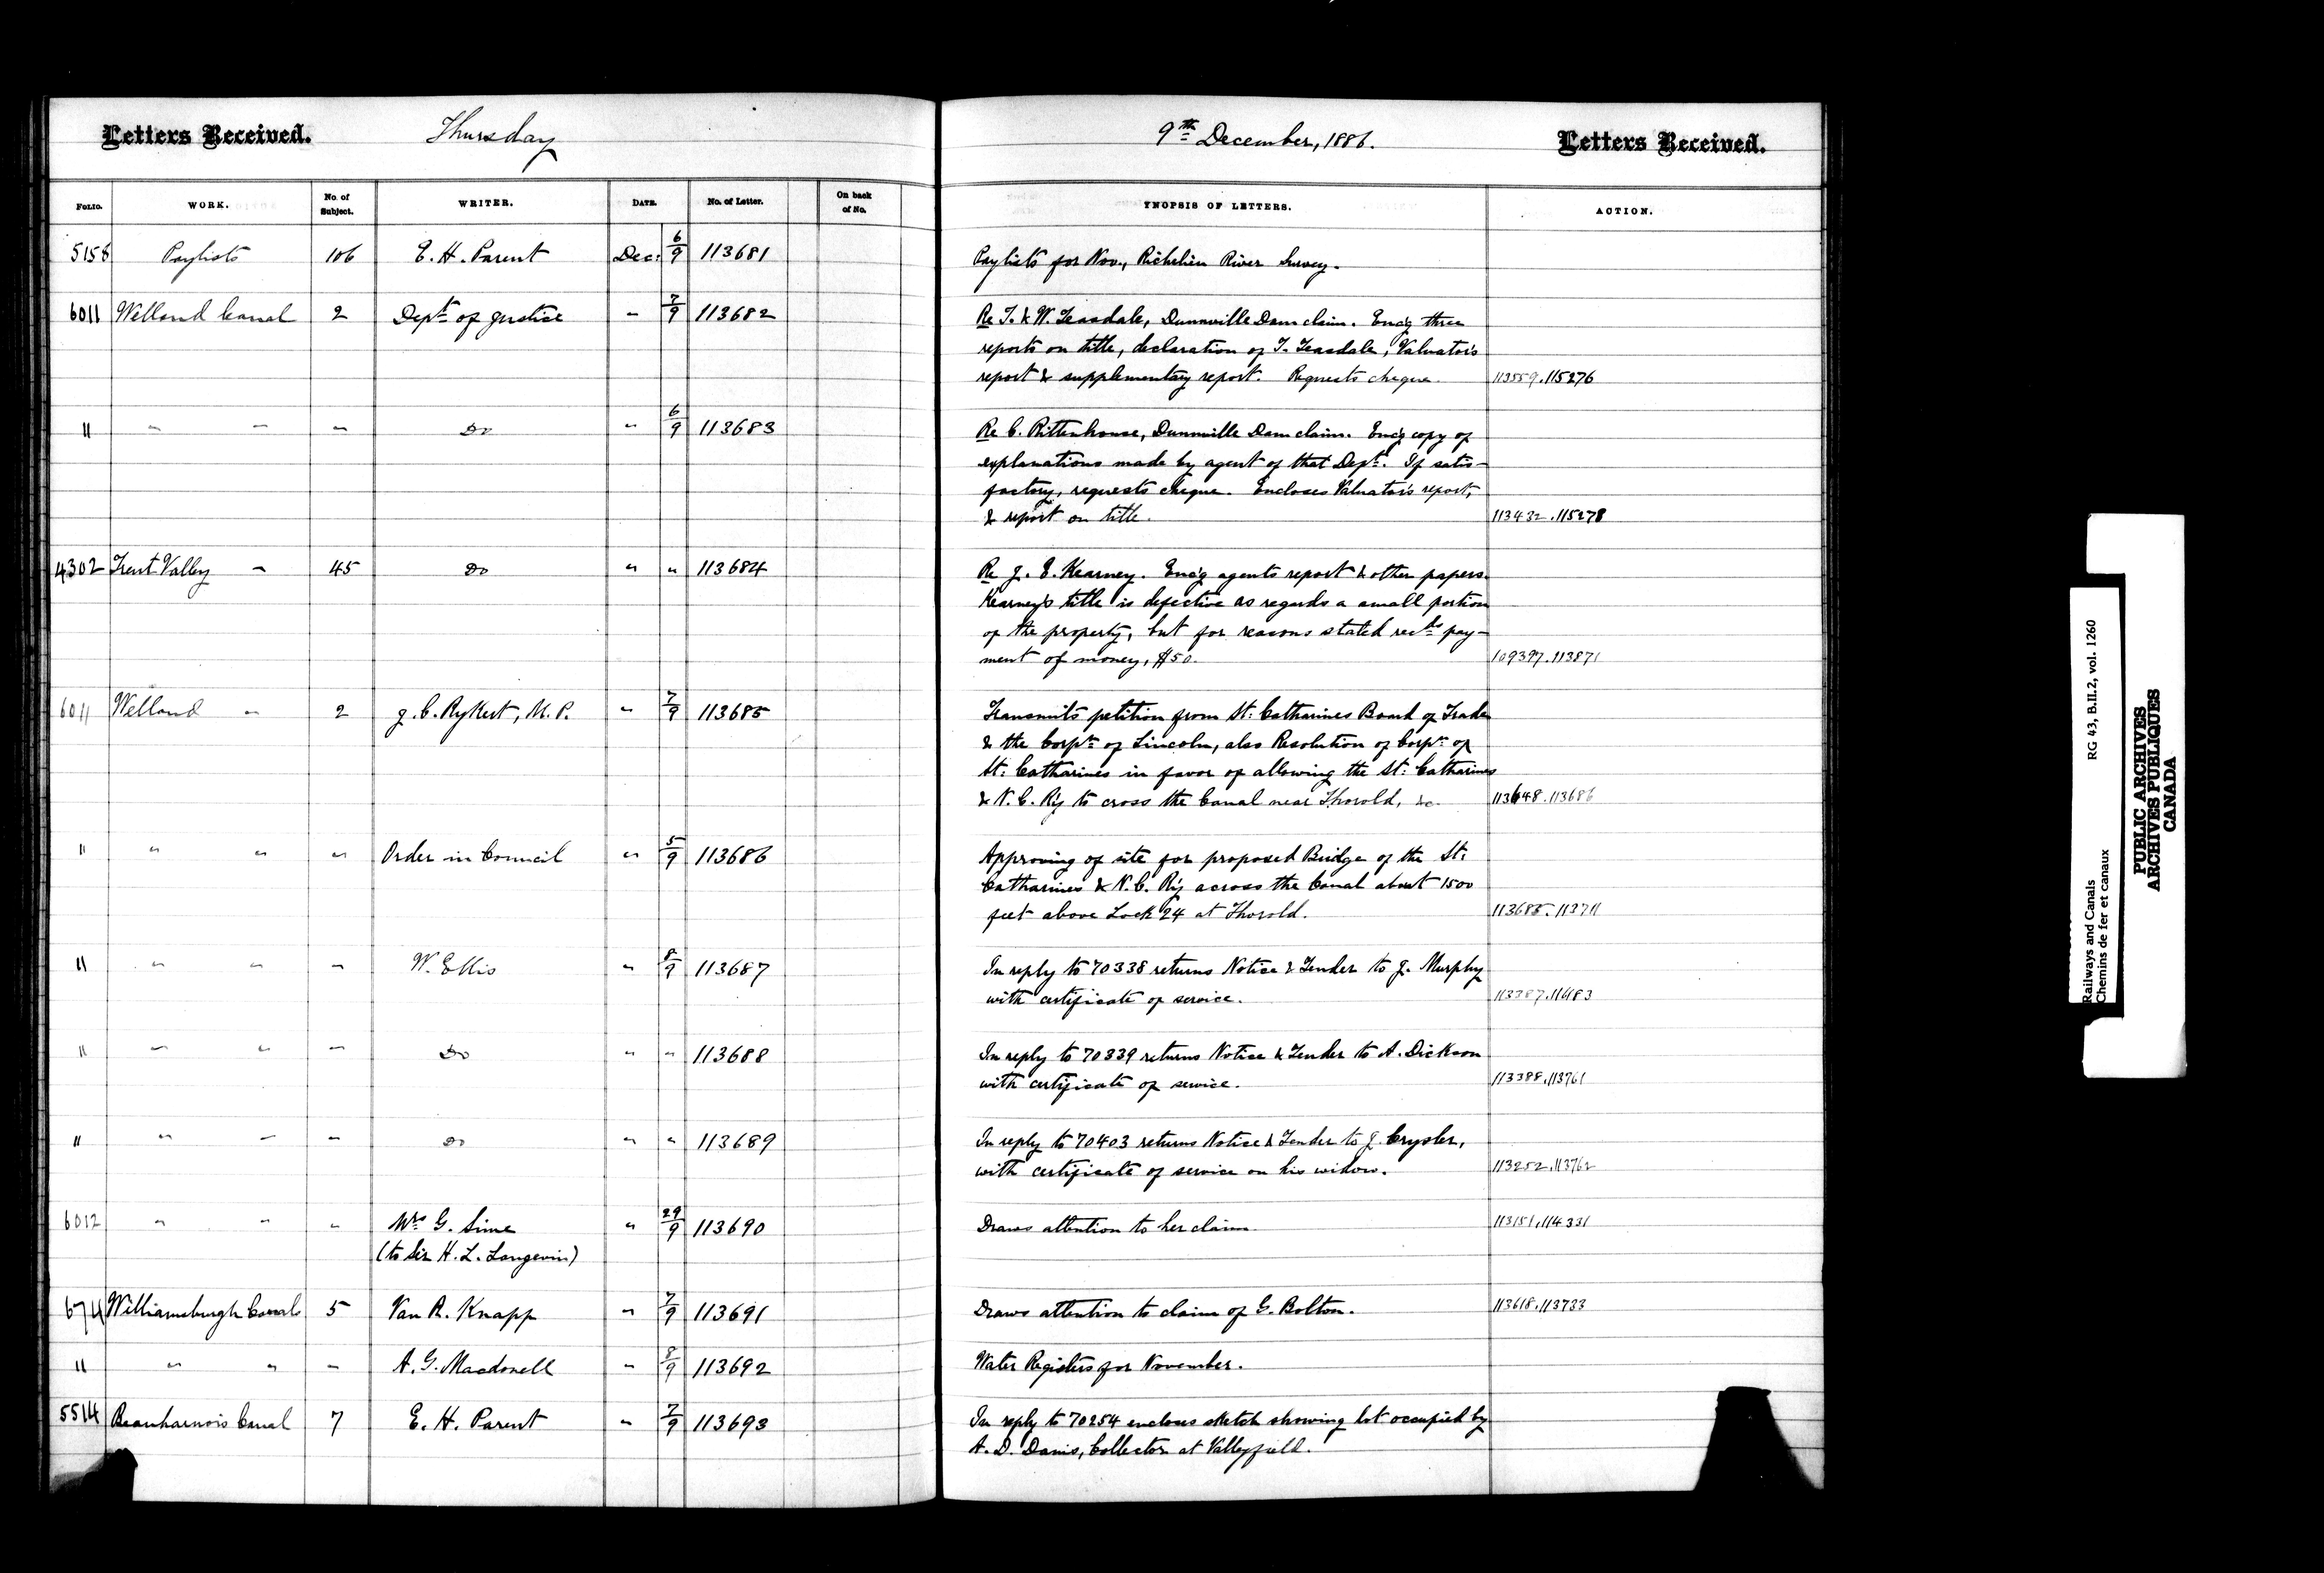 Letters Received. Thursday 9th December, 1886. Letters Received.
FOLIO. WORK. No. of Subject. WRITER. DATE. No. of Letter. On back of No. YNOPSIS OF LETTERS. ACTION.
5158 Paylists 106 E. H. Parent Dec: 6/9 113681 Paylists for Nov., Richelieu River Survey.
6011 Welland Canal 2 Dept of Justice " 7/9 113682 Re T. & W. Teasdale, Dunnville Dam claim. Enc'g three
reports on title, declaration of T. Teasdale, Valuator's
report & supplementary report. Requests cheque. 113559.115276
" " " " Do " 6/9 113683 Re C. Rittenhouse, Dunnville Dam claim. Enc'g copy of
explanations made by agent of that Dept. If satis-
factory, requests cheque. Encloses Valuator's report,
& report on title. 113432.115278
4302 Trent Valley " 45 Do " " 113684 Re J. E. Kearney. Enc'g agents report & other papers.
Kearney's title is defective as regards a small portion
of the property, but for reasons stated recds pay-
ment of money, $50. 109397.113871
6011 Welland " 2 J. C. Rykert, M.P. " 7/9 113685 Transmits petition from St: Catharines Board of Trade
& the Corptn of Lincoln, also Resolution of Corptn of
St: Catharines in favor of allowing the St: Catharines
& N. C. R'y to cross the Canal near Thorold, &c. 113648.113686
" " " " Order in Council " 5/9 113686 Approving of site for proposed Bridge of the St:
Catharines & N. C. R'y across the Canal about 1500
feet above Lock 24 at Thorold. 113685.113711
" " " " W. Ellis " 8/9 113687 In reply to 70338 returns Notice & Tender to J. Murphy
with certificate of service. 113387.11483
" " " " Do " " 113688 In reply to 70339 returns Notice & Tender to A. Dickson
with certificate of service. 113388.113761
" " " " Do " " 113689 In reply to 70403 returns Notice & Tender to J. Crysler,
with certificate of service on his widow. 113252.113762
6012 " " " Mrs G. Sime " 29/9 113690 Draws attention to her claim. 113151.114331
(to Sir H. L. Langevin)
674 Williamsburgh Canals 5 Van R. Knapp " 7/9 113691 Draws attention to claim of G. Bolton. 113618.113733
" " " " A. G. Macdonell " 8/9 113692 Water Registers for November.
5514 Beauharnois Canal 7 E. H. Parent " 7/9 113693 In reply to 70254 encloses sketch showing lot occupied by
A. D. Danis, Collector at Valleyfield.
Railways and Canals RG 43, B.II.2, vol. 1260
Chemins de fer et canaux
PUBLIC ARCHIVES
ARCHIVES PUBLIQUES
CANADA